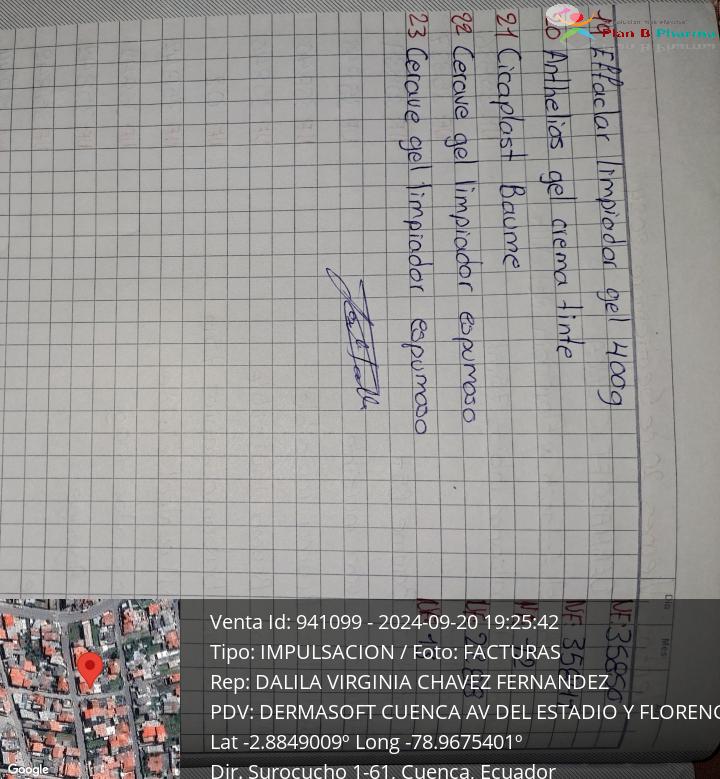 Plan B Pharma
19 Effaclar limpiador gel 400g
20 Anthelios gel crema tinte
21 Cicaplast Baume
22 Cerave gel limpiador espumoso
23 Cerave gel limpiador espumoso
Dia Mes
Venta Id: 941099 - 2024-09-20 19:25:42
Tipo: IMPULSACION / Foto: FACTURAS
Rep: DALILA VIRGINIA CHAVEZ FERNANDEZ
PDV: DERMASOFT CUENCA AV DEL ESTADIO Y FLORENC
Lat -2.8849009º Long -78.9675401º
Dir. Surocucho 1-61, Cuenca, Ecuador
Google